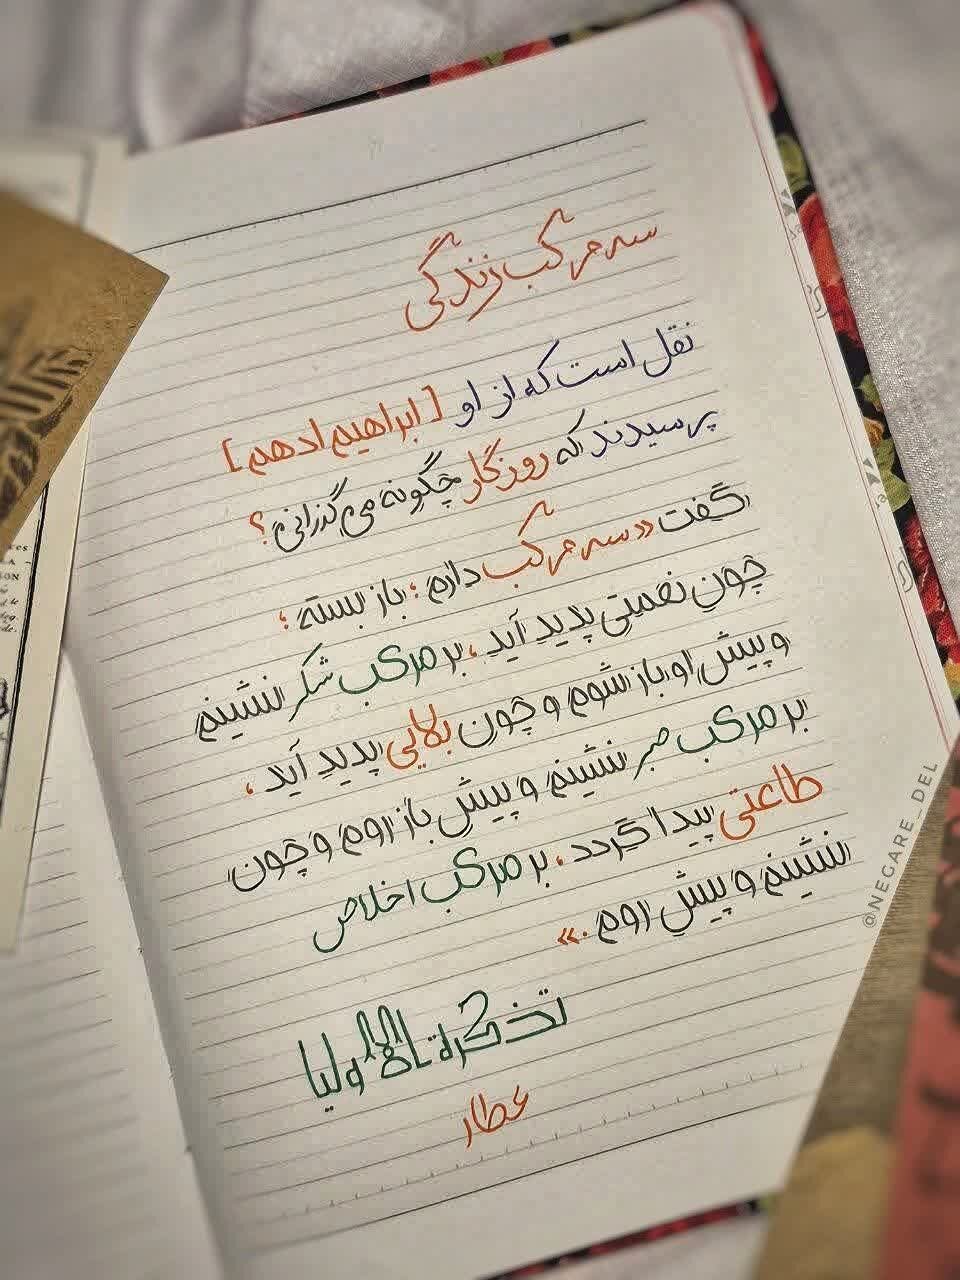 سه مرکب زندگی
نقل است که از او [ابراهیم ادهم]
پرسیدند که روزگار چگونه می گذرانی؟
گفت «سه مرکب دارم؛ باز بسته؛
چون نعمتی پدید آید، بر مرکب شکر نشینم
و پیش او باز شوم و چون بلایی پدید آید،
بر مرکب صبر نشینم و پیش باز روم و چون
طاعتی پیدا گردد، بر مرکب اخلاص
نشینم و پیش روم.»
تذکرة الاولیا
عطار
@NEGARE_DEL